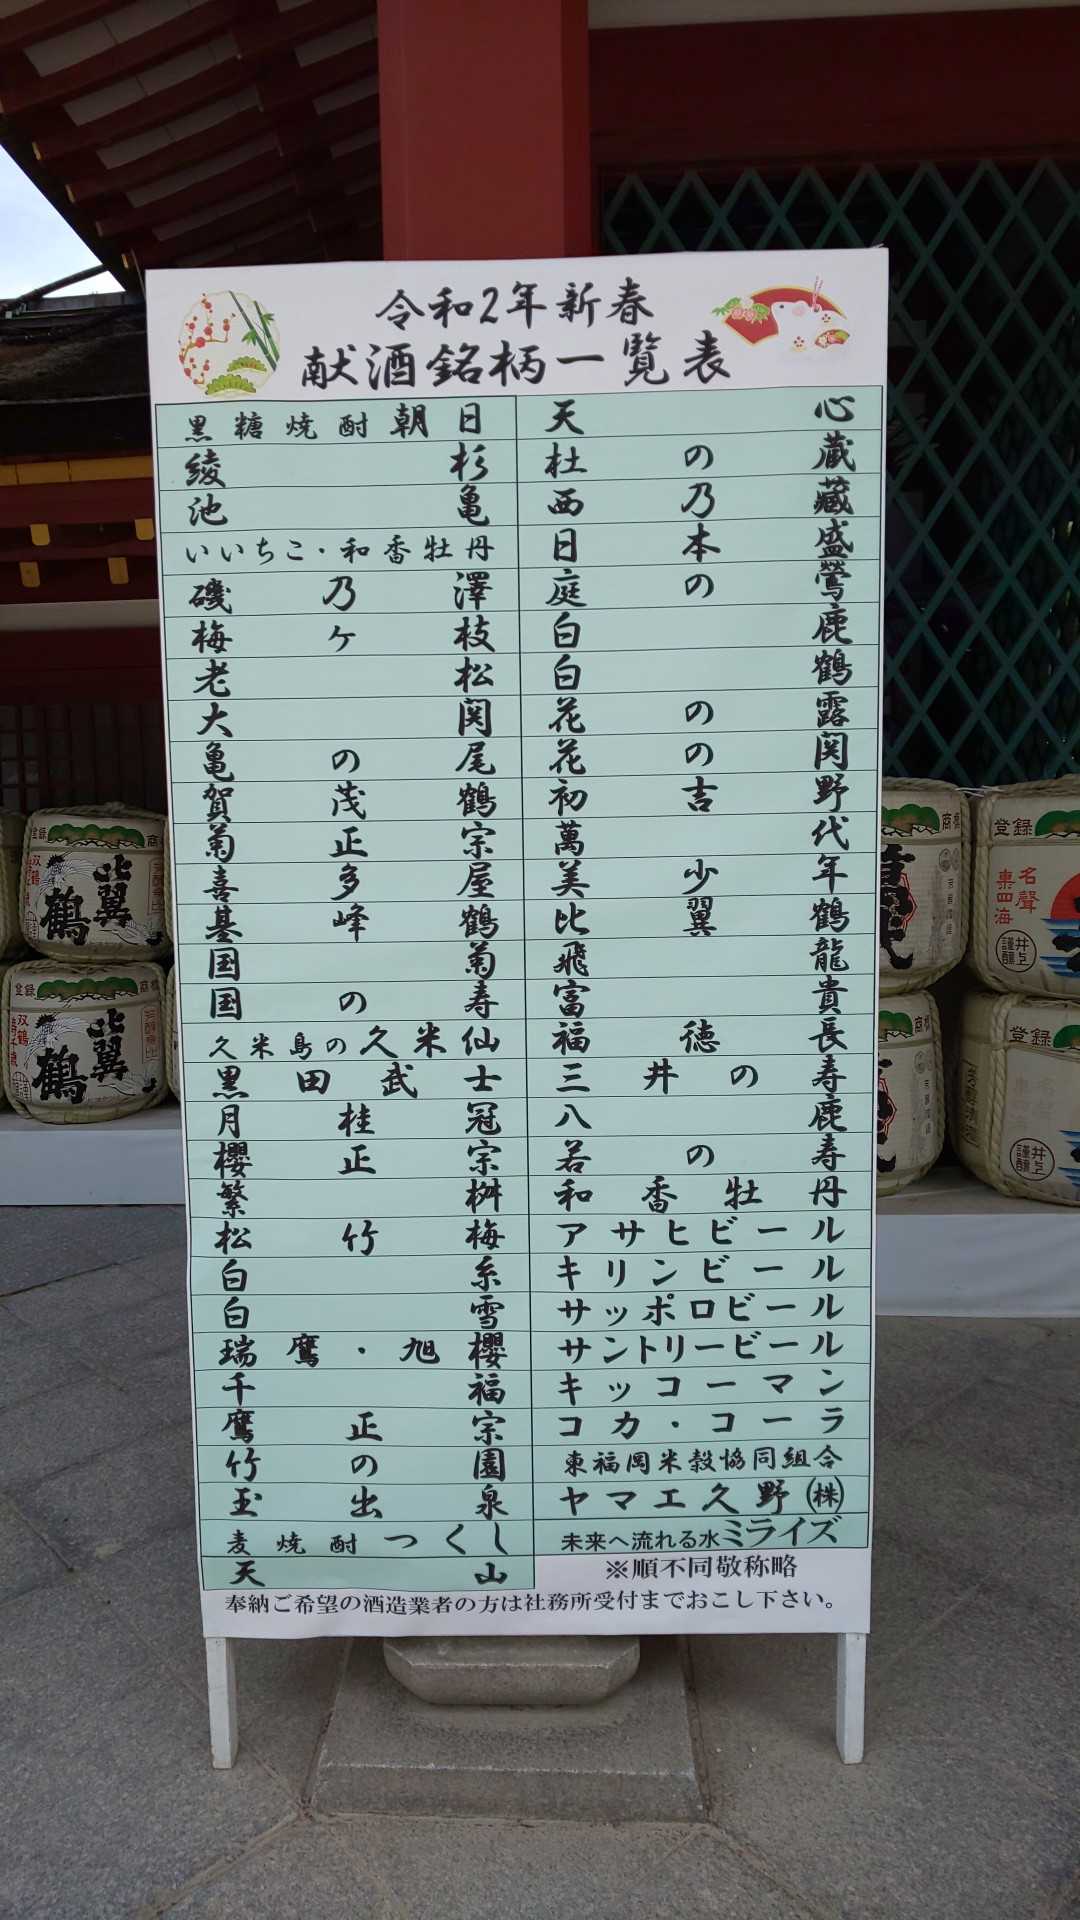 令和2年新春
献酒銘柄一覧表
黒糖焼酎朝日
綾杉
池亀
いいちこ・和香牡丹
磯乃澤
梅ヶ枝
老松
大関
亀の尾
賀茂鶴
菊正宗
喜多屋
基峰鶴
国菊
国の寿
久米島の久米仙
黒田武士
月桂冠
櫻正宗
繁桝
松竹梅
白糸
白雪
瑞鷹・旭櫻
千福
鷹正宗
竹の園
玉出泉
麦焼酎つくし
天山
天心
杜の蔵
西乃藏
日本盛
庭の鶯
白鹿
白鶴
花の露
花の関
初吉野
萬代
美少年
比翼鶴
飛龍
富貴
福徳長
三井の寿
八鹿
若の寿
和香牡丹
アサヒビール
キリンビール
サッポロビール
サントリービール
キッコーマン
コカ・コーラ
東福岡米穀協同組合
ヤマエ久野㈱
未来へ流れる水ミライズ
※順不同敬称略
奉納ご希望の酒造業者の方は社務所受付までおこし下さい。
登録
比翼
鶴
双鶴
登録
商標
比翼
鶴
双鶴
商標
登録
名聲
東四海
井上
謹醸
商標
登録
井上
謹醸